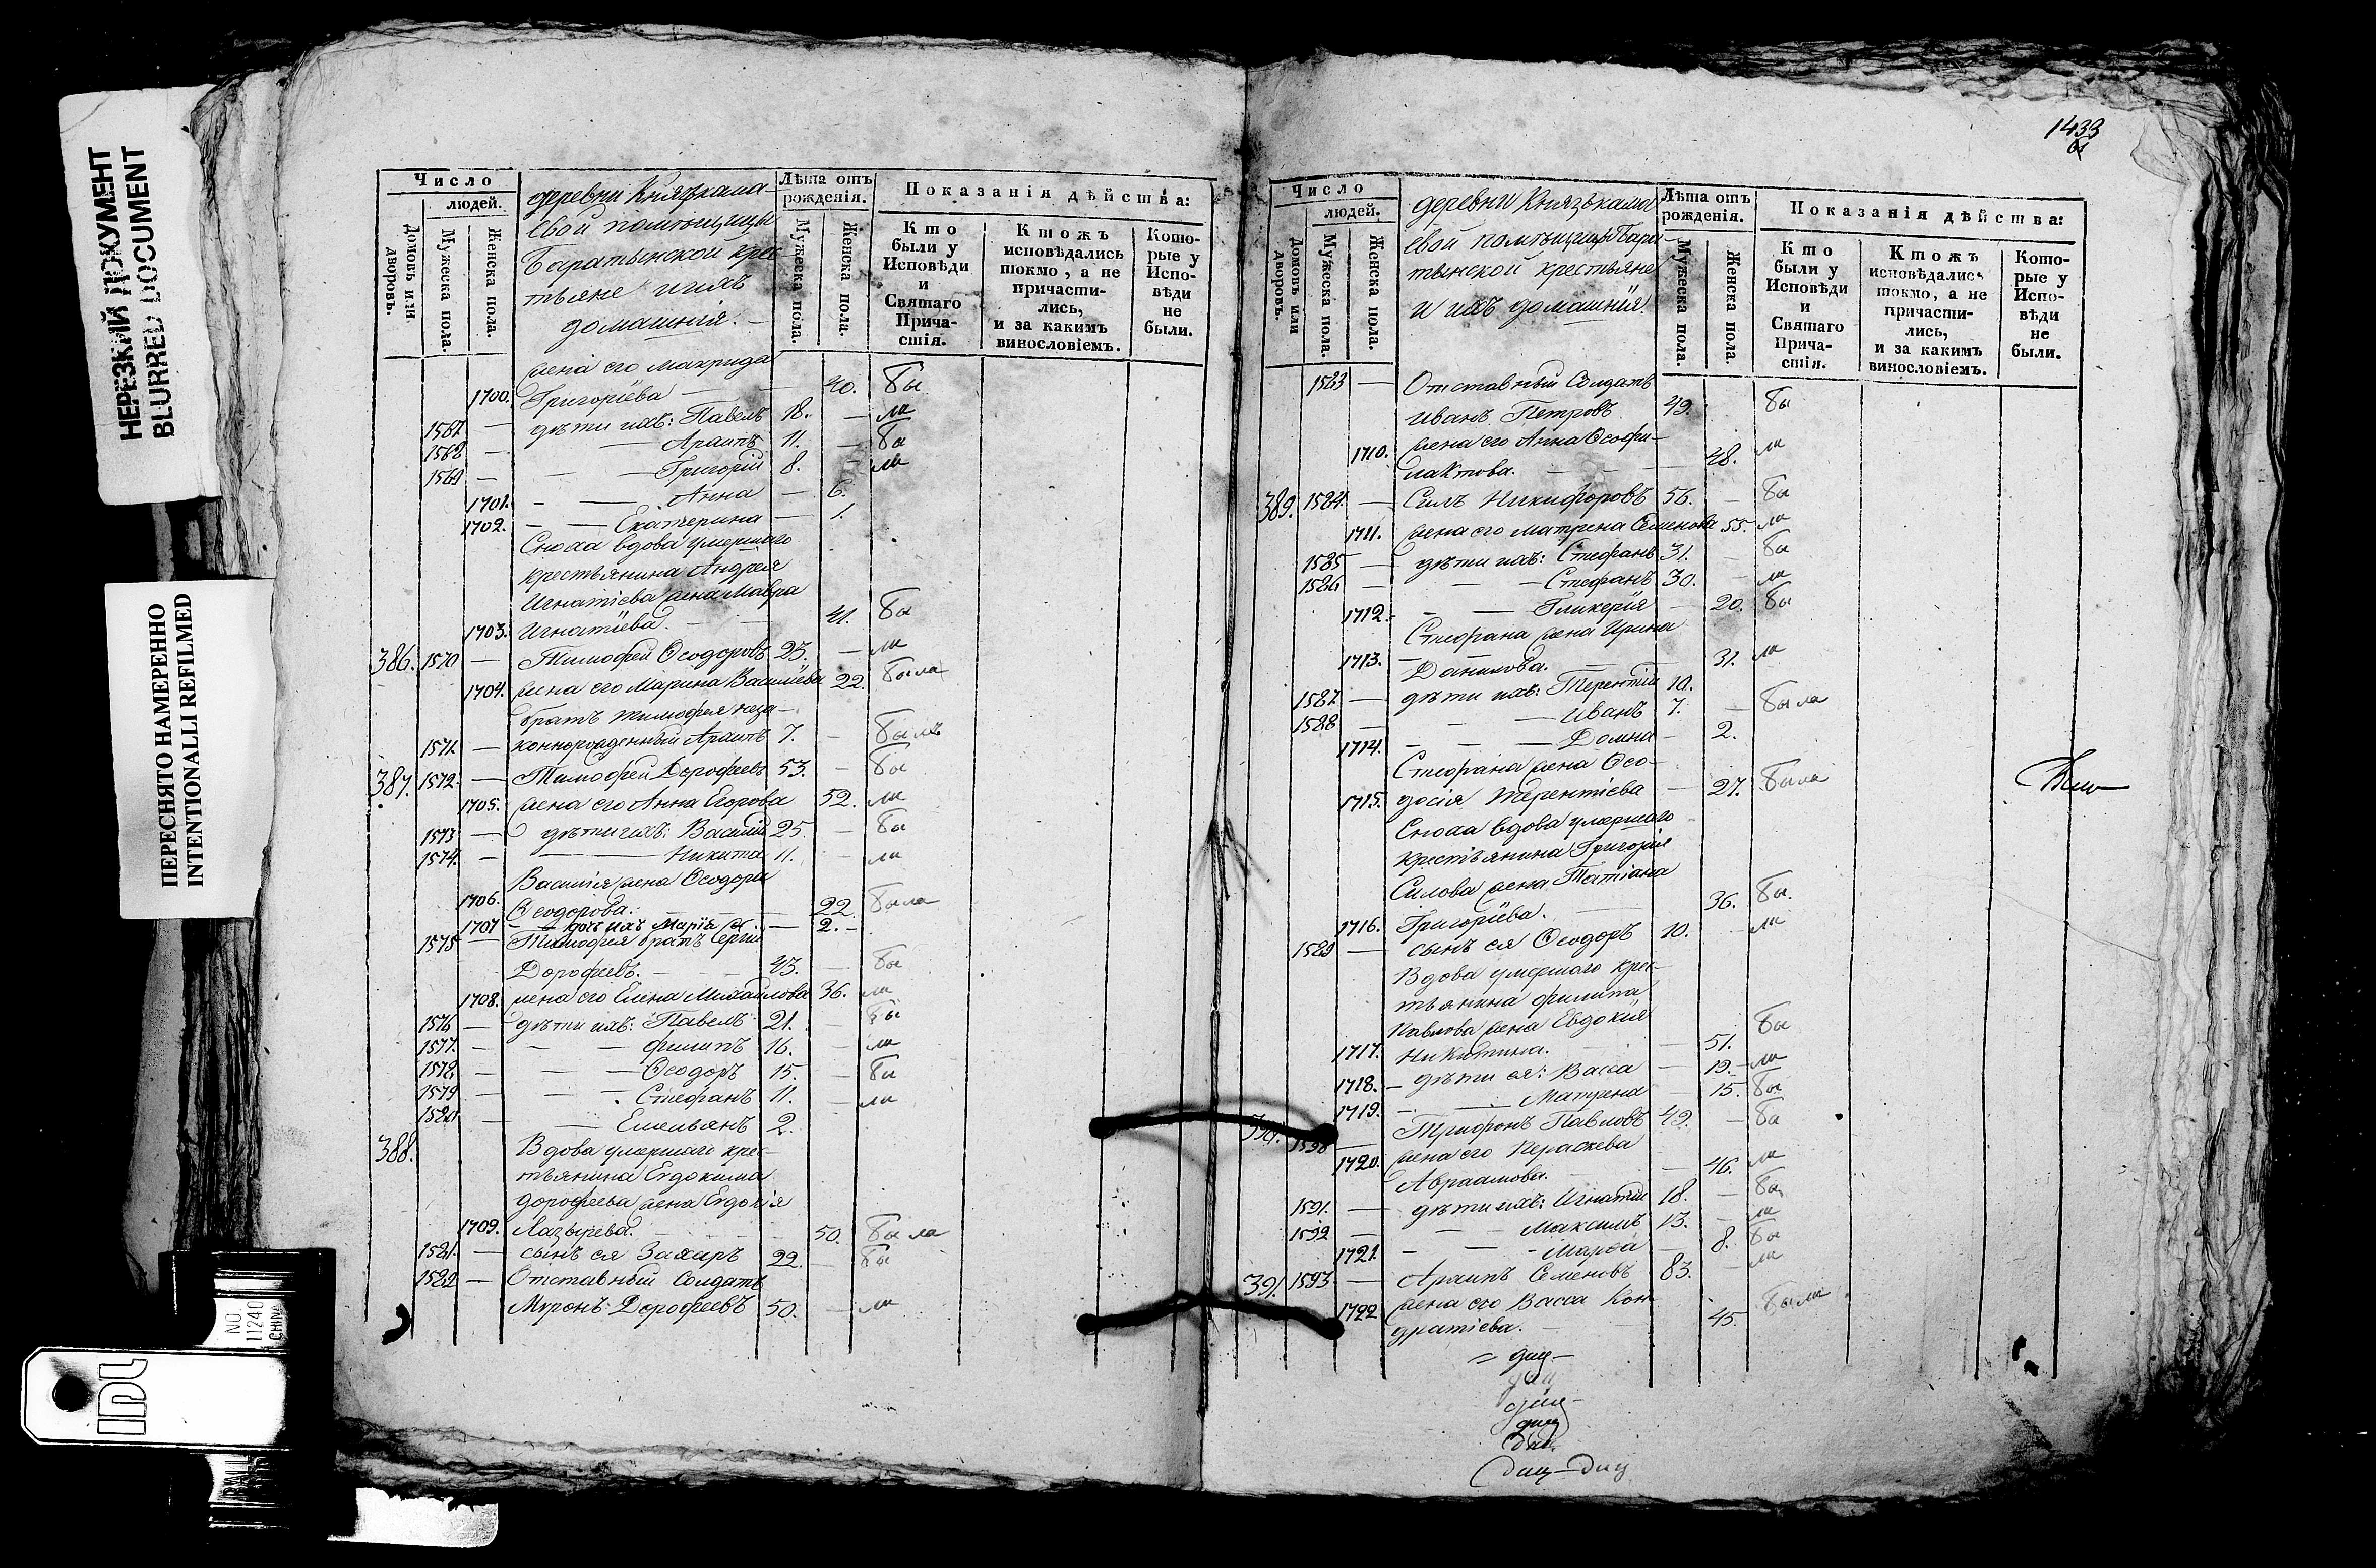 НЕРЕЗКИЙ ДОКУМЕНТ
BLURRED DOCUMENT
ПЕРЕСНЯТО НАМЕРЕННО
INTENTIONALLI REFILMED
NO.
11240
CHINA
Число
людей.
Домовъ или дворовъ.
Мужеска пола.
Женска пола.
деревни Княжкама
евой помѣщицы
Баратынской крес
тьяне и ихъ
домашнія.
Лѣта отъ рожденія.
Мужеска пола.
Женска пола.
Показанія дѣйства:
Кто были у Исповѣди и Святаго Причастія.
Ктожъ исповѣдались токмо, а не причастились, и за какимъ винословіемъ.
Которые у Исповѣди не были.
жена его Макрида
1700. Григорьева 40. бы
1567 дѣти ихъ: Павелъ 18. ли
1568 Архипъ 11. бы
1569 Григорій 8. ли
1701. Анна 6.
1702. Екатерина 1.
Сноха вдова умершаго
крестьянина Андрея
Игнатіева жена Мавра
1703. Игнатіева. 41. бы
386. 1570 Тимофей Ѳеодоровъ 25. ли
1704. жена его Марина Васильева 22. была
братъ Тимофея неза-
1571. коннорожденный Архипъ 7. былъ
387. 1572. Тимофей Дорофеевъ 53. бы
1705. жена его Анна Егорова 52. ли
1573 дѣти ихъ: Василій 25. бы
1574. Никита 11. ли
Василія жена Ѳеодора
1706. Ѳеодорова. 22. была
1707 дочь ихъ Марія 2.
1575 Тимофея братъ Сергій
Дорофеевъ. 43. бы
1708. жена его Елена Михайлова 36. ли
1576 дѣти ихъ: Павелъ 21. бы
1577. Филипъ 16. ли
1578. Ѳеодоръ 15. бы
1579 Стефанъ 11. ли
1580. Емельянъ 2.
388. Вдова умершаго крес-
тьянина Евдокима
Дорофеева жена Евдокія
1709. Лазырева. 50. была
1581. сынъ ея Захаръ 22. бы
1582 Отставный Солдатъ
Миронъ Дорофеевъ 50. ли
1433
Число
людей.
Домовъ или дворовъ.
Мужеска пола.
Женска пола.
деревни Князькама
евой помѣщицы Бара
тынской крестьяне
и ихъ домашнія.
Лѣта отъ рожденія.
Мужеска пола.
Женска пола.
Показанія дѣйства:
Кто были у Исповѣди и Святаго Причастія.
Ктожъ исповѣдались токмо, а не причастились, и за какимъ винословіемъ.
Которые у Исповѣди не были.
1583 Отставный Солдатъ
Иванъ Петровъ 49. бы
1710. жена его Анна Ѳеофи-
лактова. 48. ли
389. 1584. Силъ Никифоровъ 56. бы
1711. жена его Матрена Семенова 55. ли
1585 дѣти ихъ: Стефанъ 31. бы
1586 Стефанъ 30. ли
1712. Гликерія 20. бы
Стефана жена Ирина
1713. Данилова. 31. ли
1587 дѣти ихъ: Терентій 10.
1588 Иванъ 7. была
1714. Домна 2.
Стефана жена Ѳео-
1715. досія Терентіева 27. была
Сноха вдова умершаго
крестьянина Григорія
Силова жена Татіана
1716. Григорьева. 36. бы.
1589 сынъ ея Ѳеодоръ 10. ли
Вдова умершаго крес-
тьянина Филипа
Павлова жена Евдокія
1717. Никитина. 51. бы
1718. дѣти ея: Васса 19. ли
1719. Матрена 15. бы
390. 1590 Трифонъ Павловъ 49. бы
1720. жена его Пераскева
Авраамова. 46. ли
1591. дѣти ихъ: Игнатій 18. бы
1592 Максимъ 13. ли
1721. Марѳа 8. бы
391. 1593. Архипъ Семеновъ 83. ли
1722 жена его Васса Кон-
дратіева. 45. была